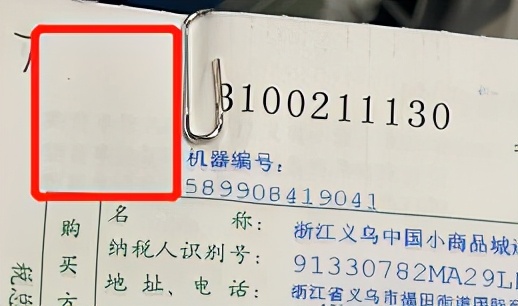 3100211130
机器编号:
589908419041
购买方
名 称:
浙江义乌中国小商品城
纳税人识别号:
91330782MA29L
地 址、电 话:
浙江省义乌市福田街道国际
税总